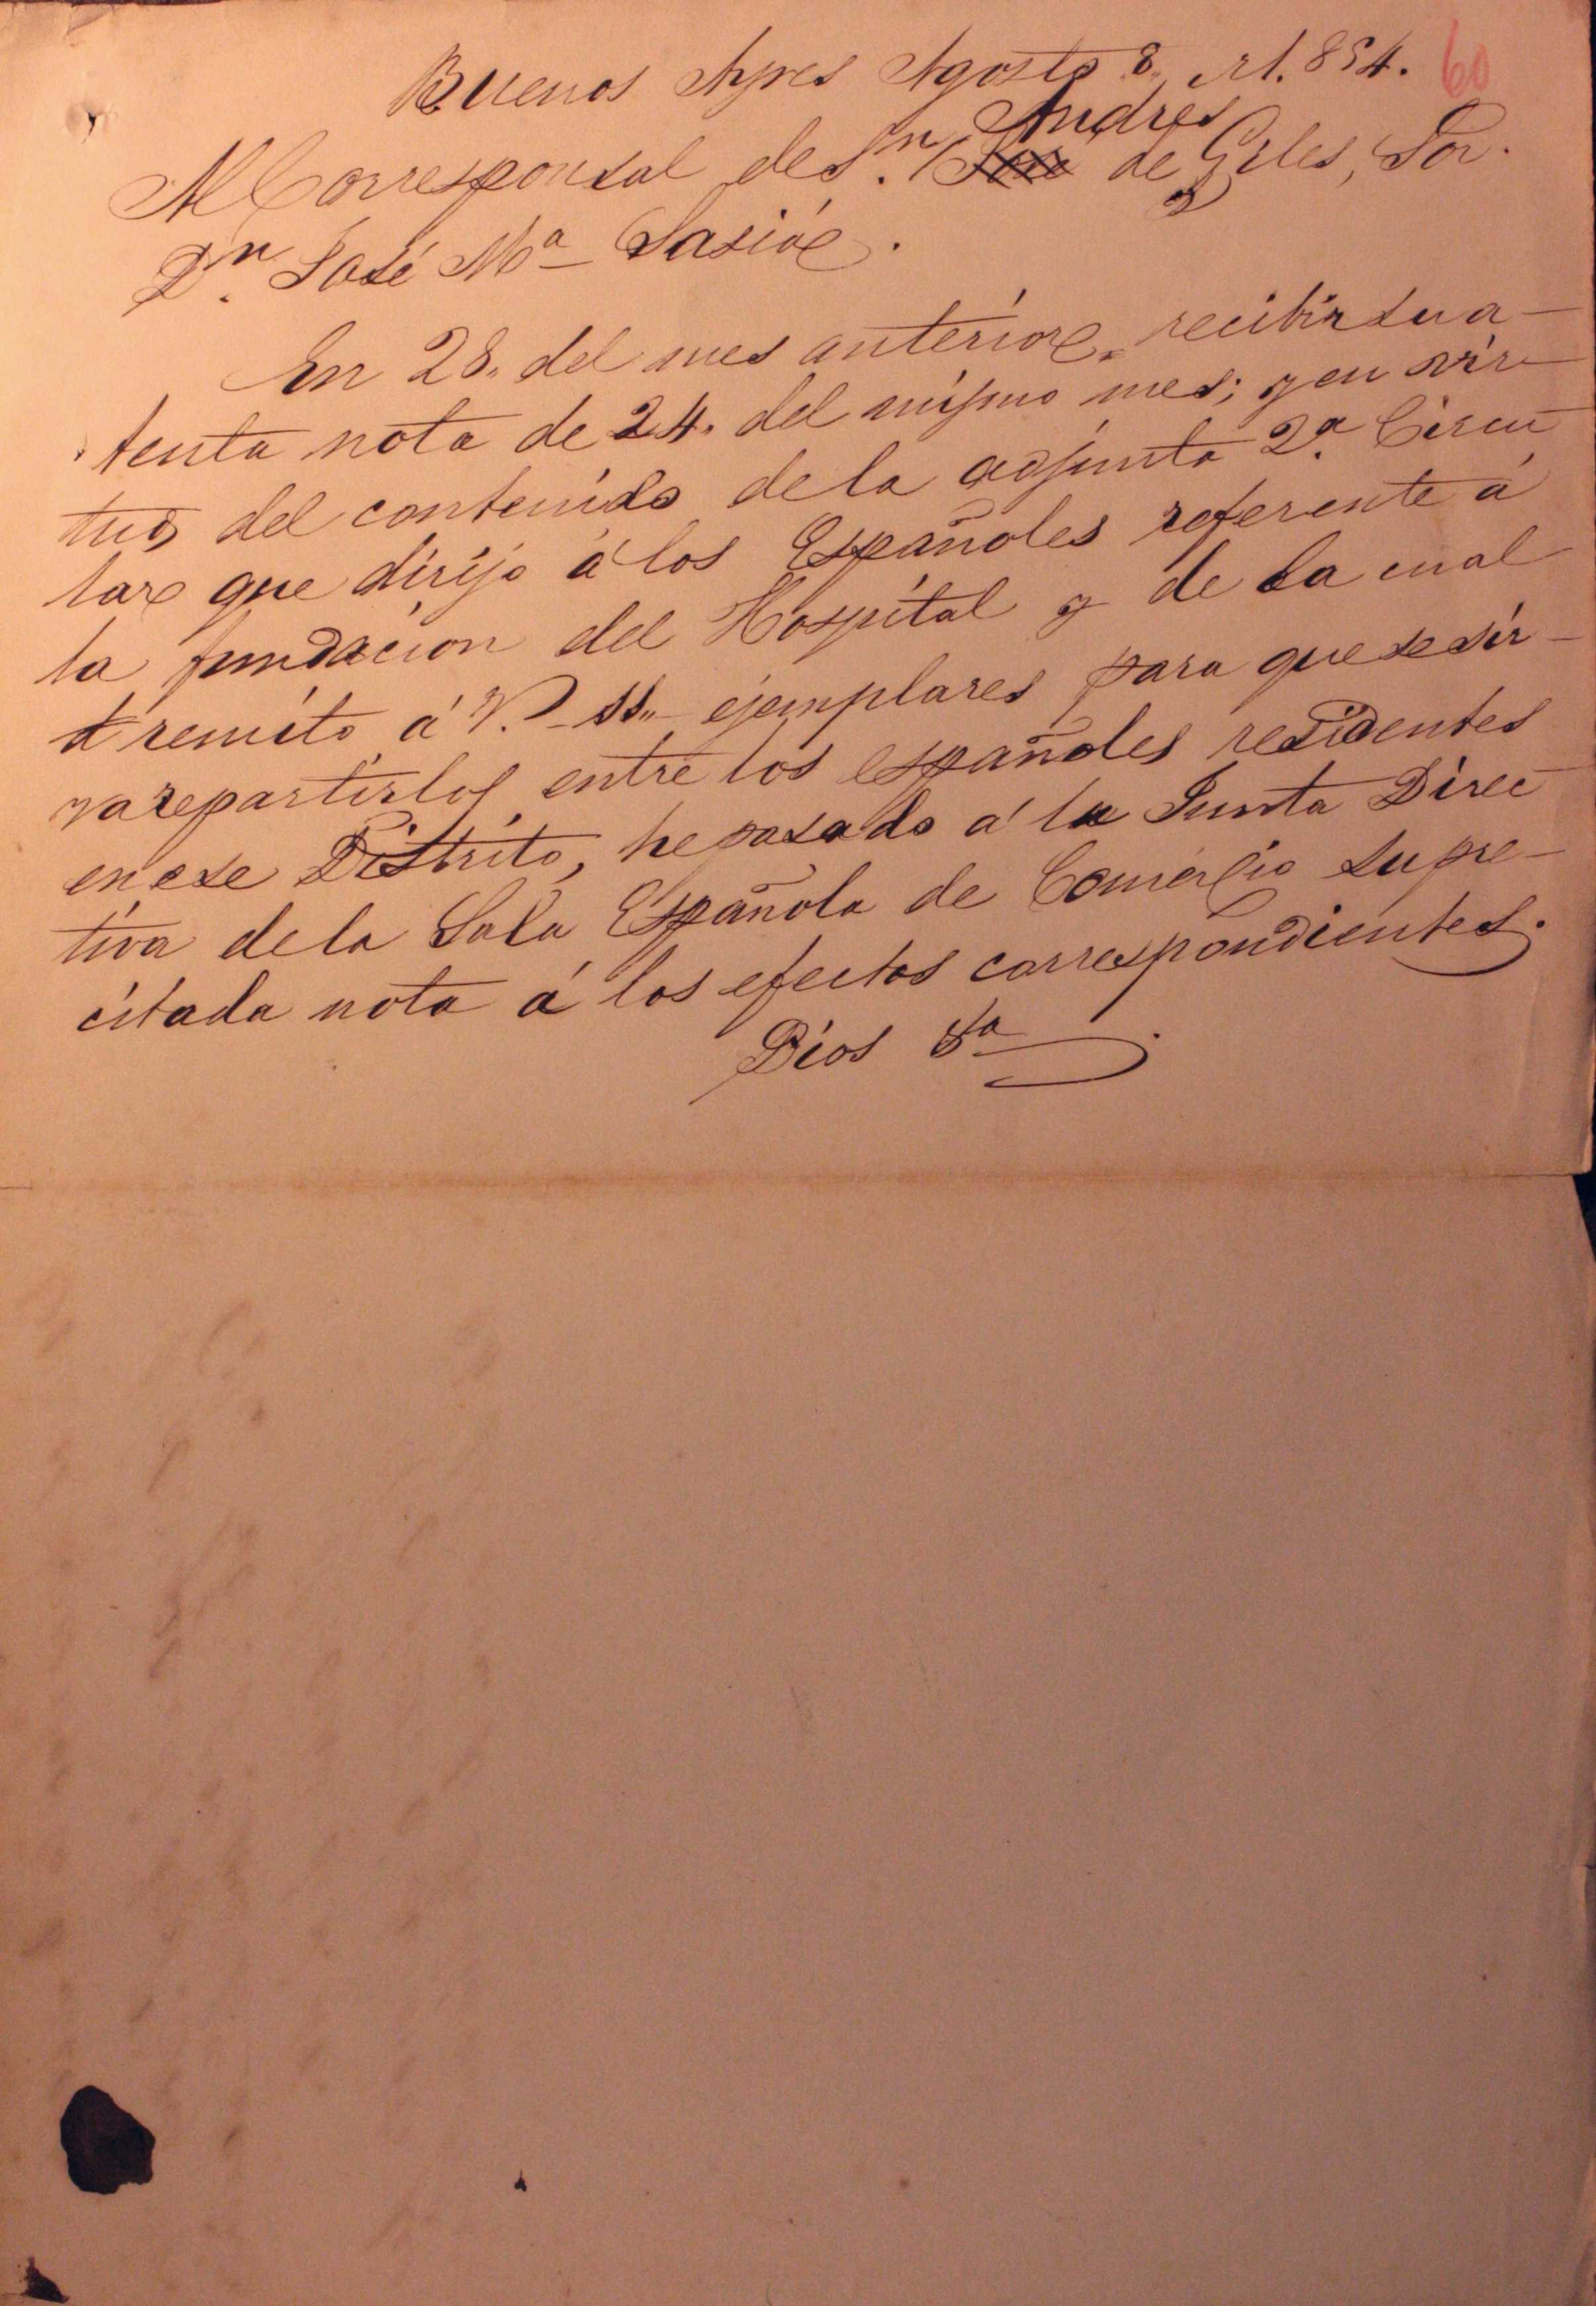 Buenos Ayres Agosto 8,, d 1.854. 60
Andres
Al Corresponsal de Sn. de Giles, Sor.
Dn. José Ma Lasiár.
En 28. del mes anterior recibí su a-
tenta nota de 24. del mismo mes; y en vir-
tud del contenido de la adjunta 2a. Circu
lar que dirijo á los Españoles referente á
la fundacion del Hospital y de la cual
remito á V. ejemplares para que se sir-
va repartirlos entre los españoles residentes
en ese Distrito, he pasado á la Junta Direc
tiva de la Sala Española de Comercio su pre-
citada nota á los efectos correspondientes.
Dios &a